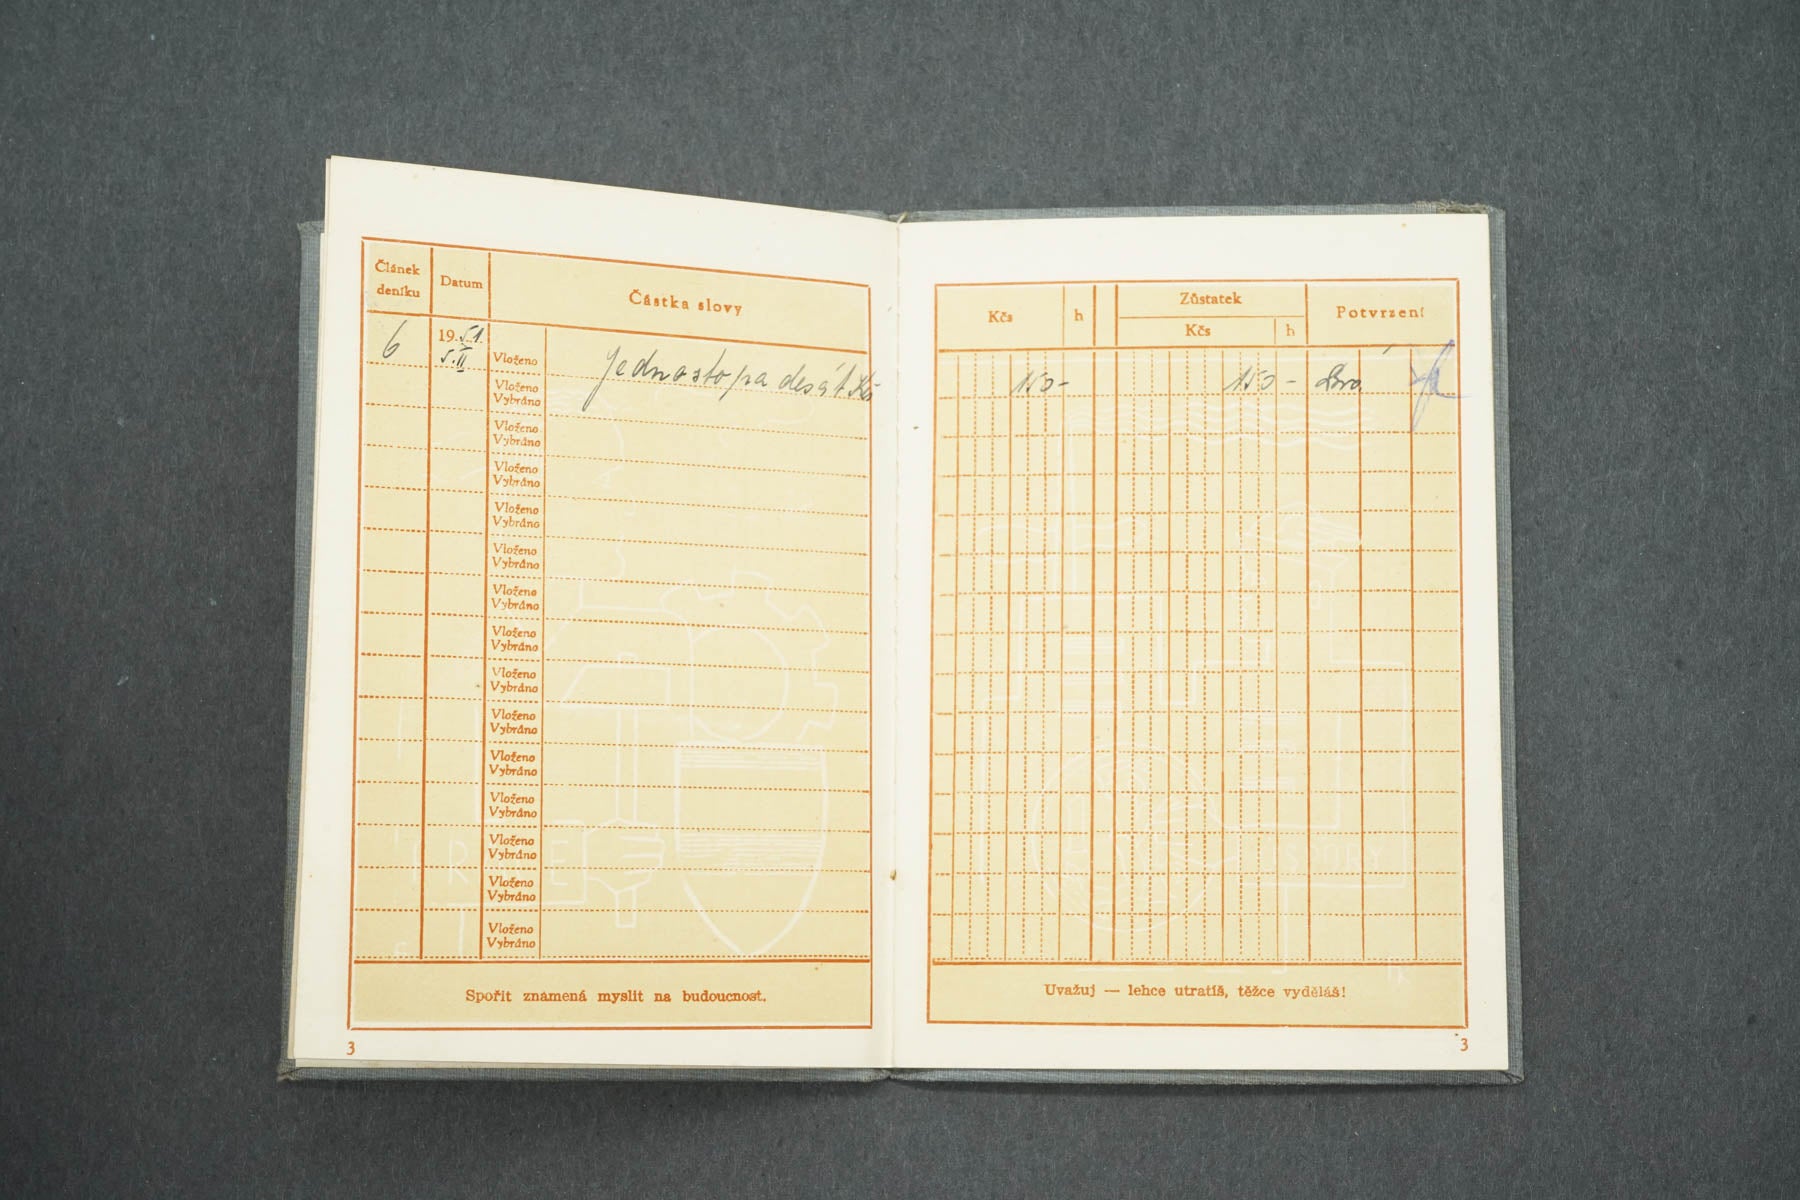 Článek deníku
Datum
Částka slovy
6
1951
5.II
Vloženo
jednostopadesát Kčs
Vloženo
Vybráno
Vloženo
Vybráno
Vloženo
Vybráno
Vloženo
Vybráno
Vloženo
Vybráno
Vloženo
Vybráno
Vloženo
Vybráno
Vloženo
Vybráno
Vloženo
Vybráno
Vloženo
Vybráno
Vloženo
Vybráno
Vloženo
Vybráno
Vloženo
Vybráno
Vloženo
Vybráno
PRÁCE
Spořit znamená myslit na budoucnost.
3
Kčs
h
Zůstatek
Kčs
h
Potvrzení
150-
150-
ÚSPORY
Uvažuj — lehce utratíš, těžce vyděláš!
3